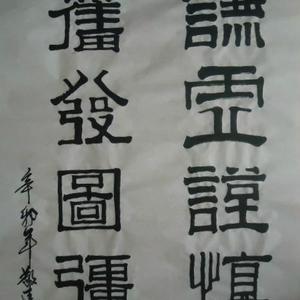 謙虛謹慎
奮發圖彊
辛卯年